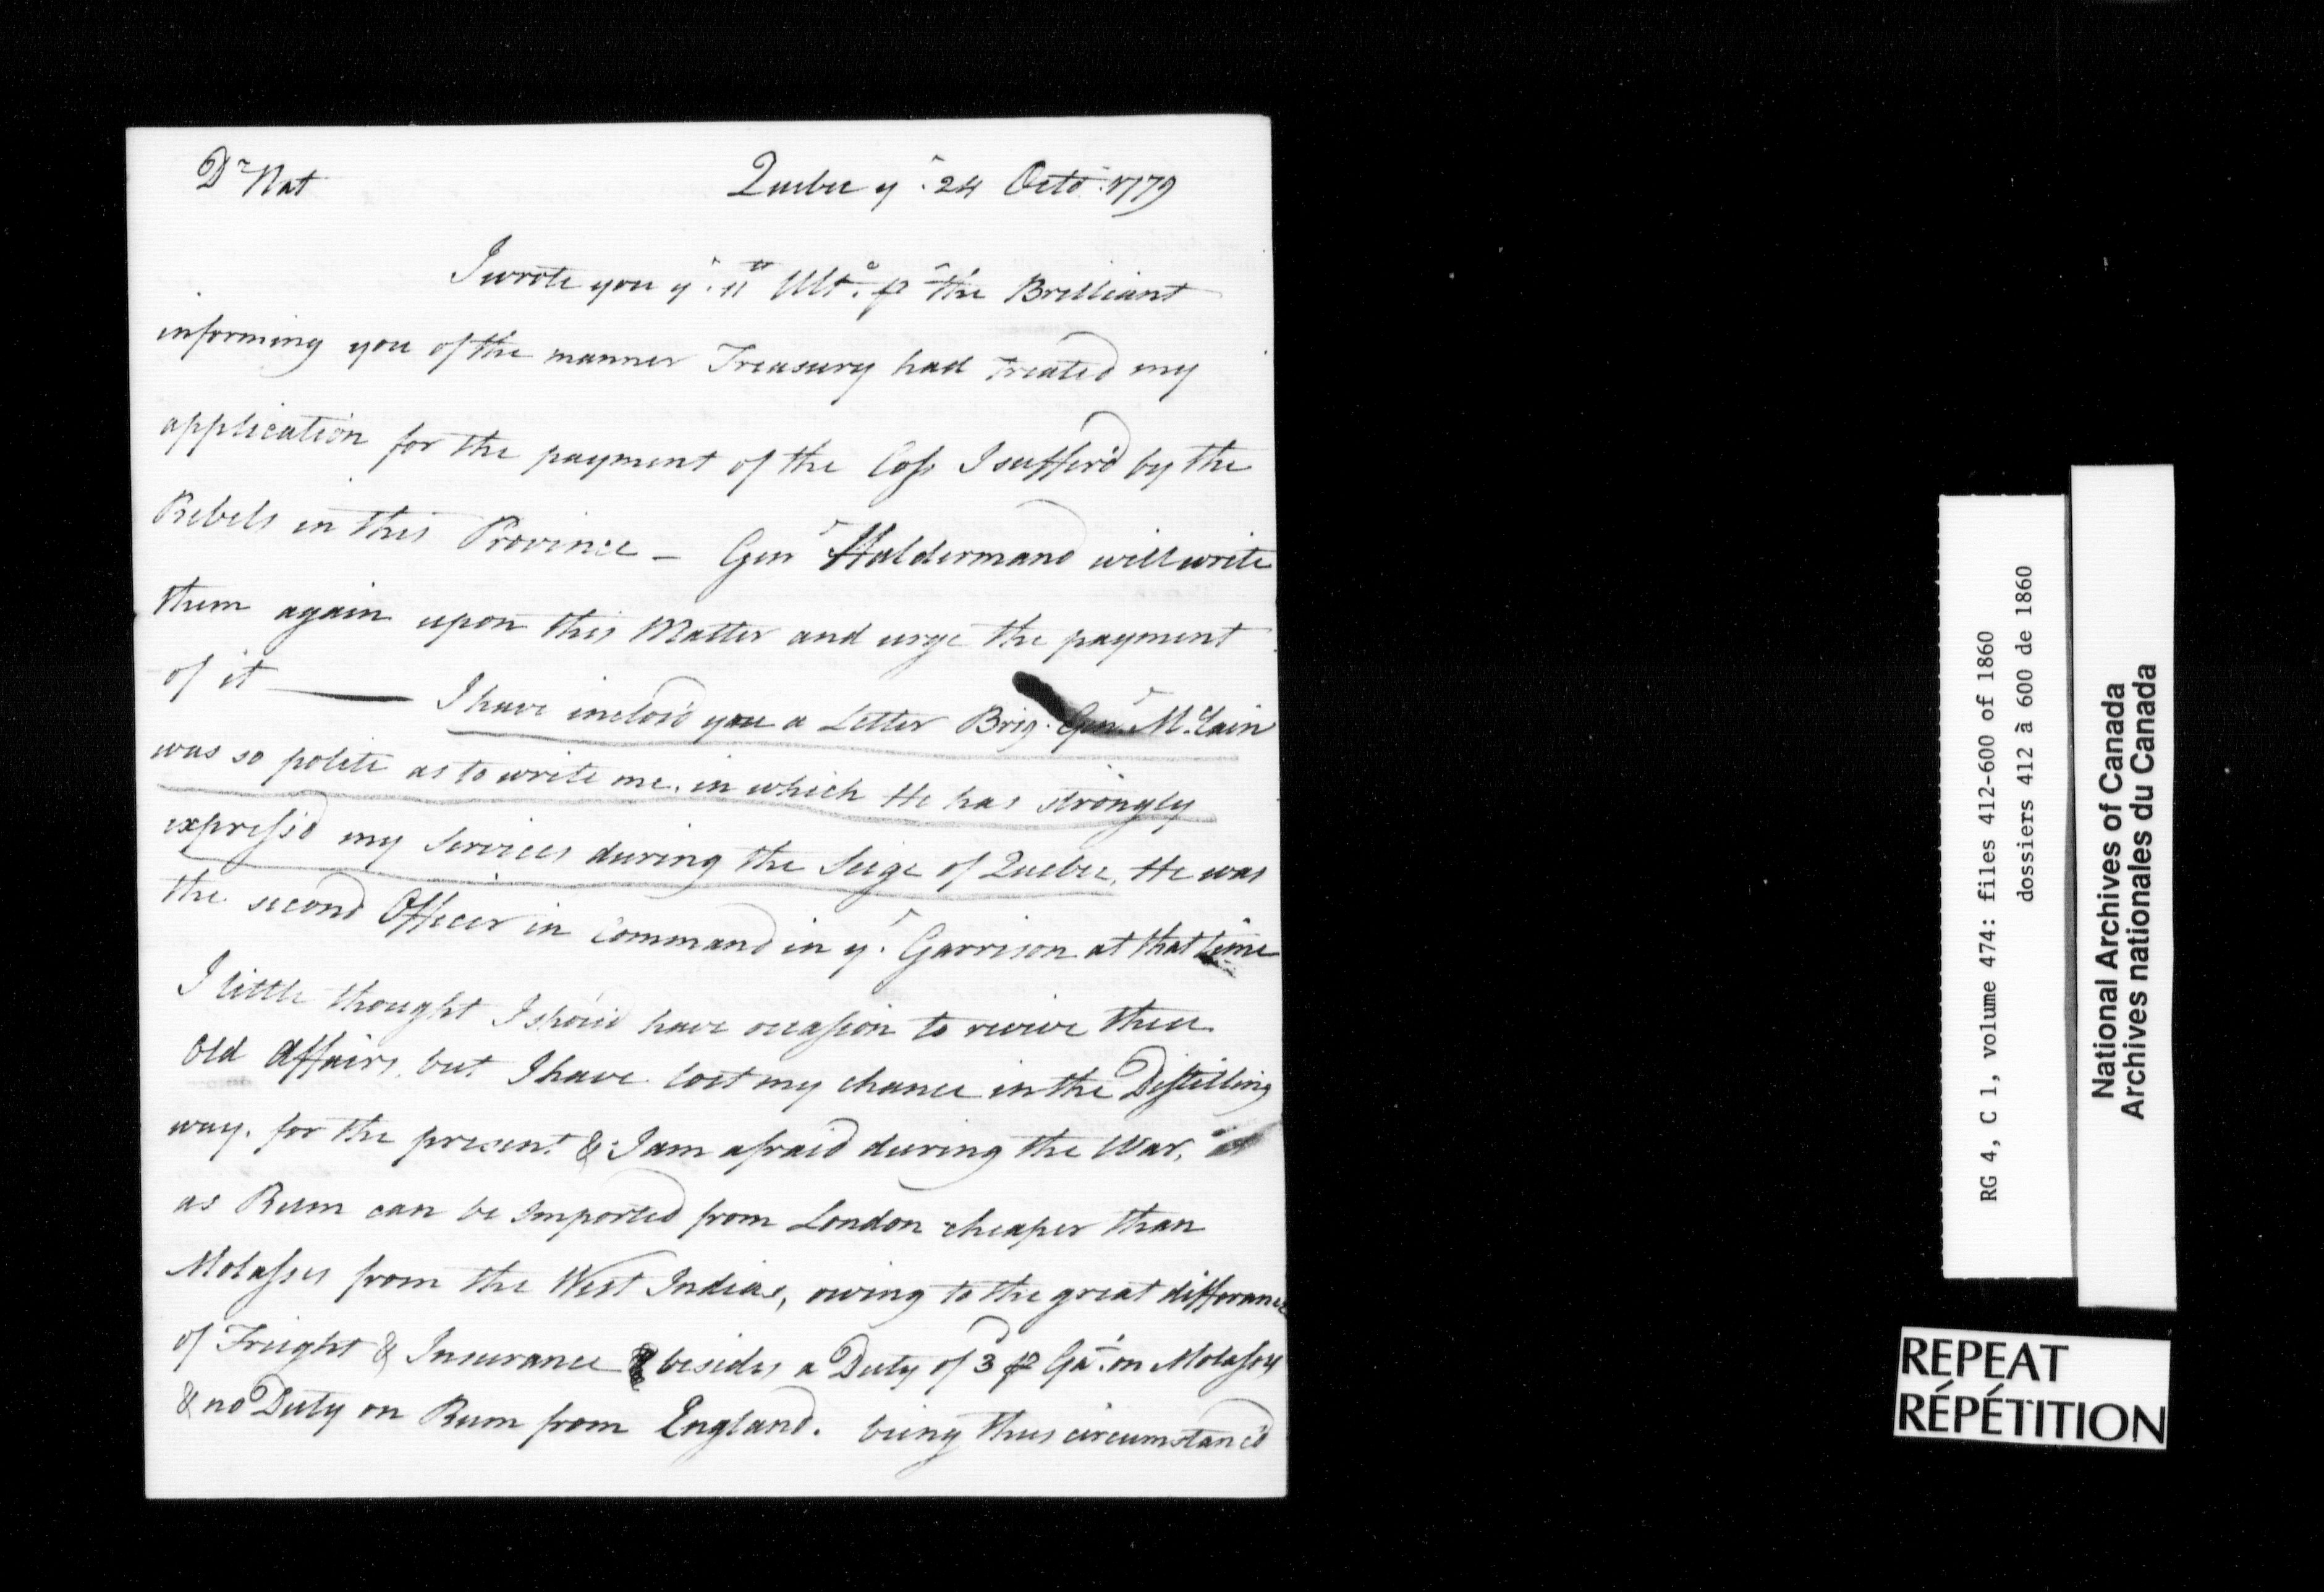 Dr Nat Quebec ye. 24 Octo. 1779
I wrote you ye. 11th Ulto. p the Brilliant
informing you of the manner Treasury had treated my
application for the payment of the Loss I suffer'd by the
Rebels in this Province — Genl Haldermand will write
them again upon this Matter and urge the payment
of it —— I have inclos'd you a Letter Brig. Genl. McLain
was so polite as to write me, in which He has strongly
express'd my Services during the Seige of Quebec, He was
the second Officer in Command in ye. Garrison at that time
I little thought I shou'd have occasion to revive these
Old Affairs, but I have lost my chance in the Distilling
way. for the present & I am afraid during the War,
as Rum can be Imported from London cheaper than
Molasses from the West Indias, owing to the great differance
of Freight & Insurance besides a Duty of 3d p Gal. on Molasses
& no Duty on Rum from England. being thus circumstanc'd
RG 4, C 1, volume 474: files 412-600 of 1860
dossiers 412 à 600 de 1860
National Archives of Canada
Archives nationales du Canada
REPEAT
RÉPÉTITION